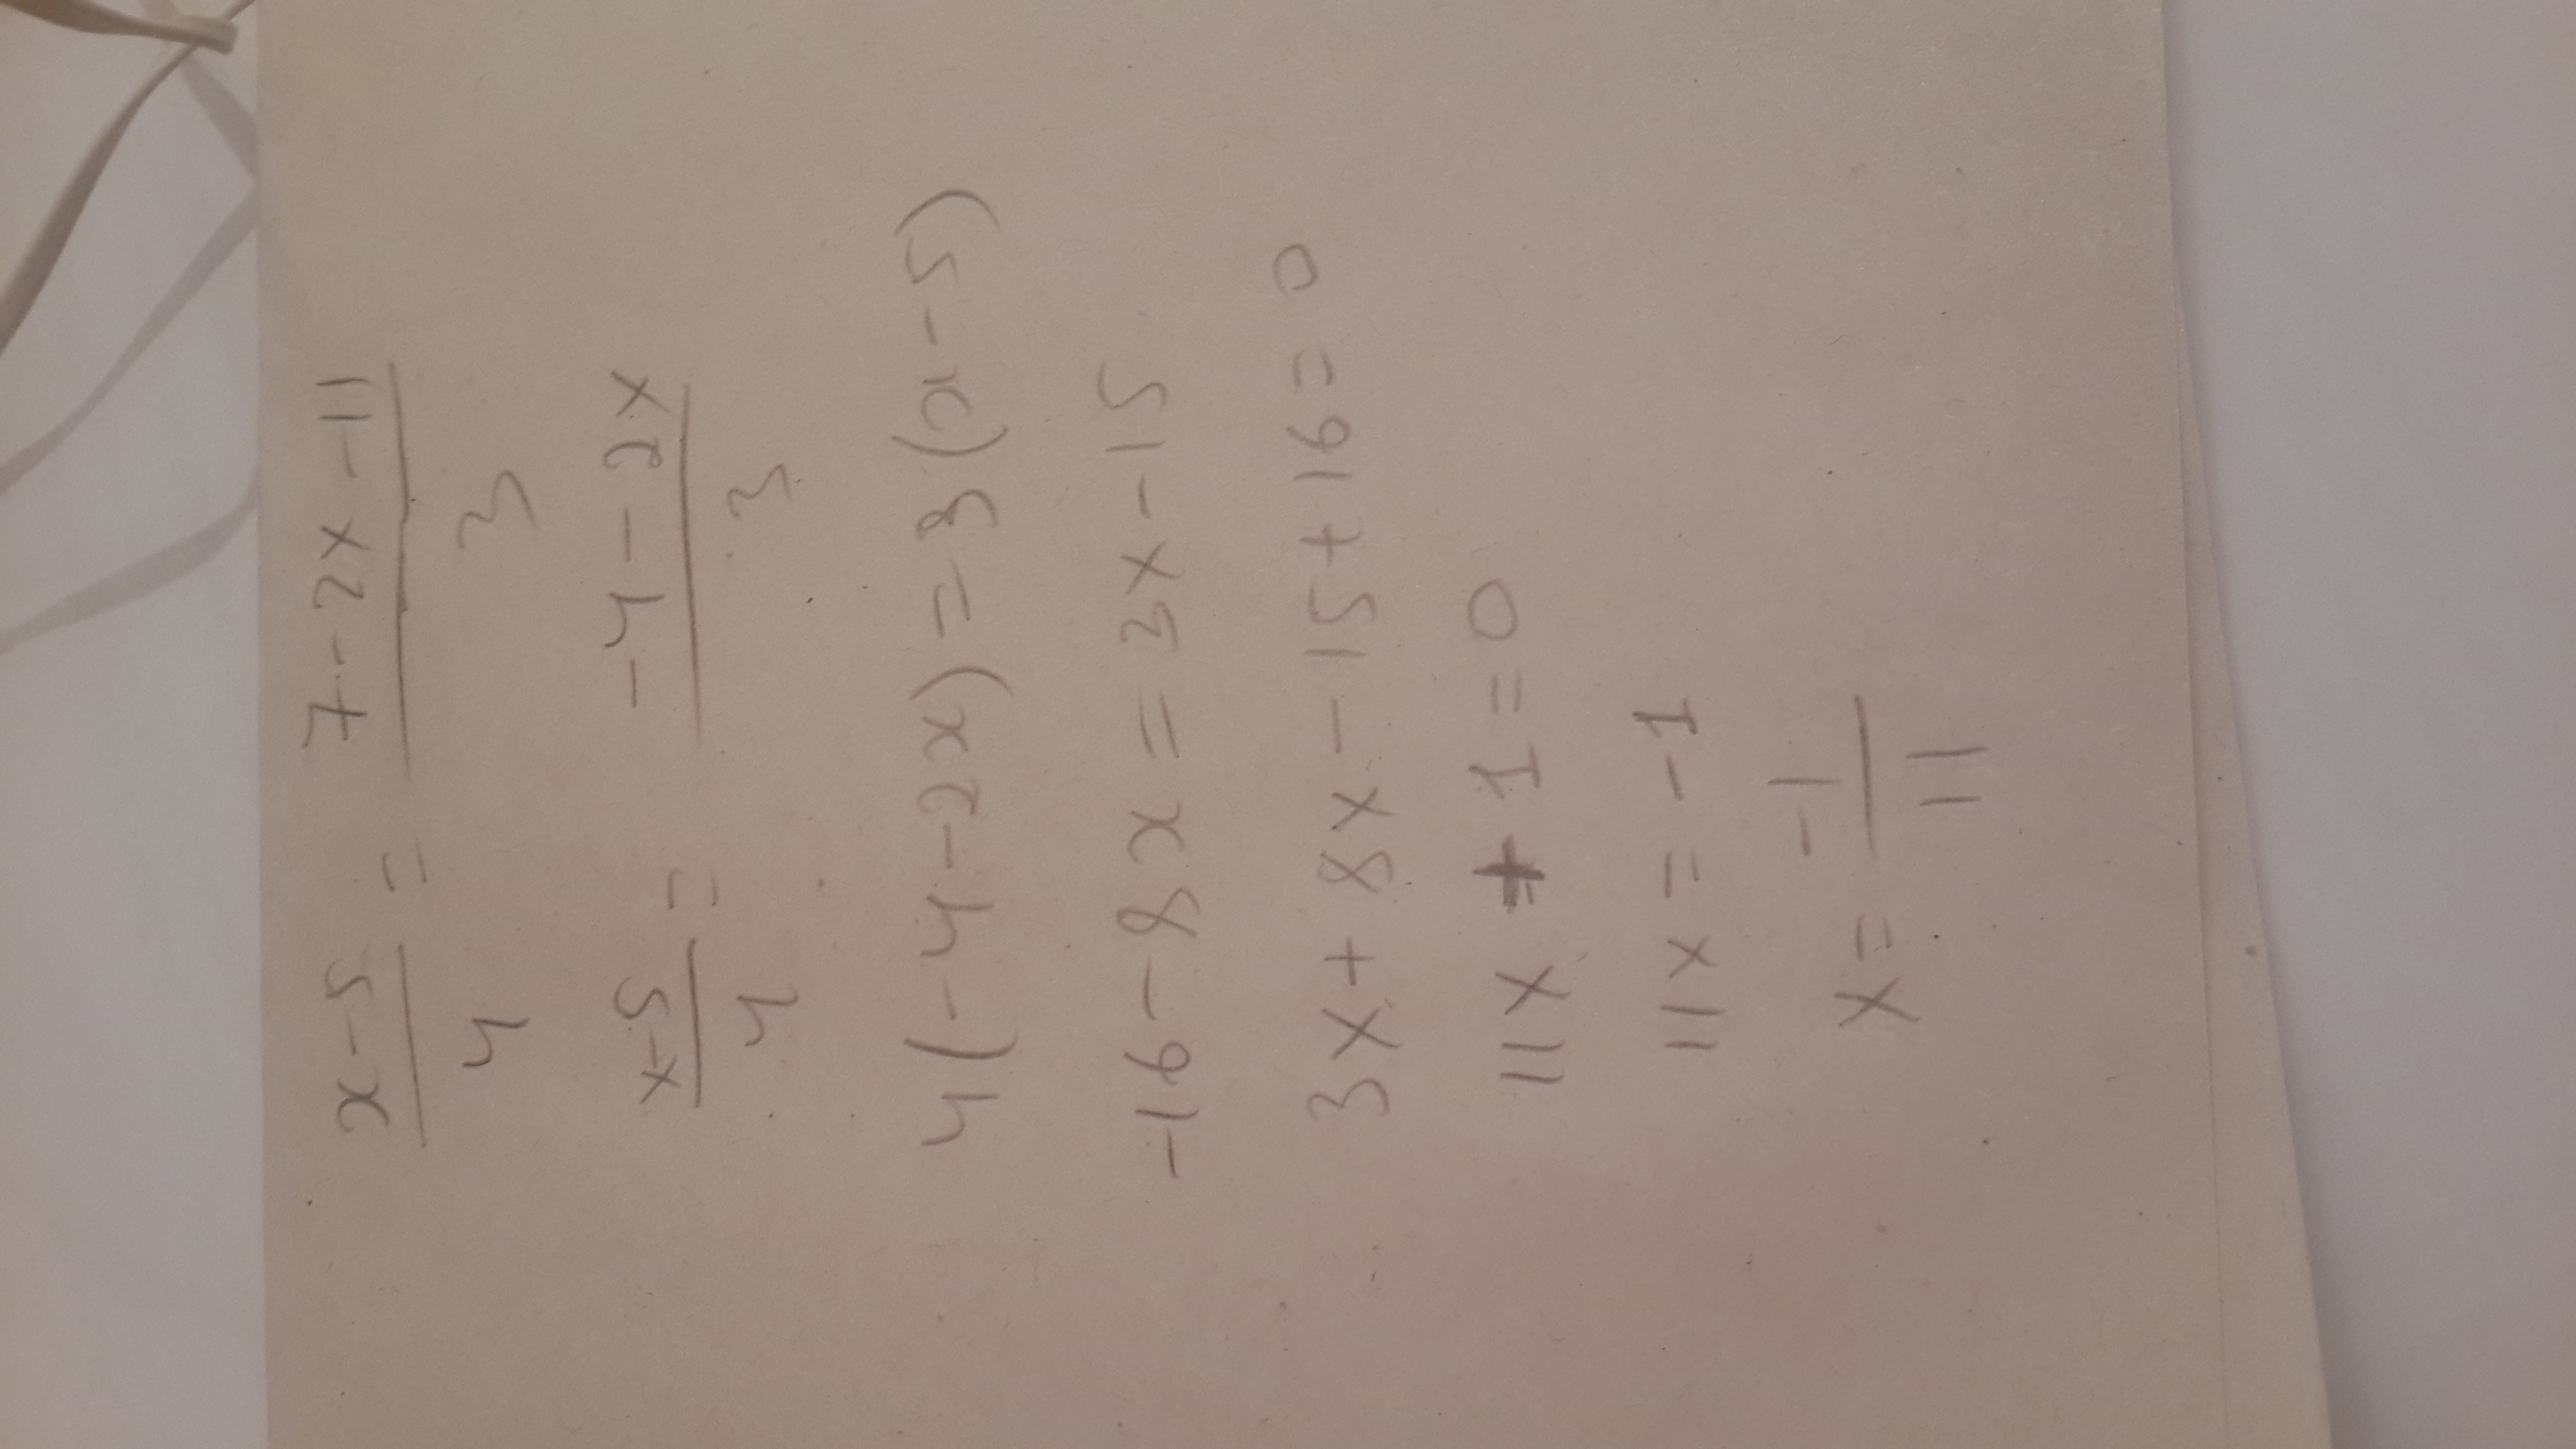 x-5/4 = 7-2x-11/3
x-5/4 = -4-2x/3
4(-4-2x)=3(x-5)
-16-8x=3x-15
3x+8x-15+16=0
11x+1=0
11x=-1
x=-1/11